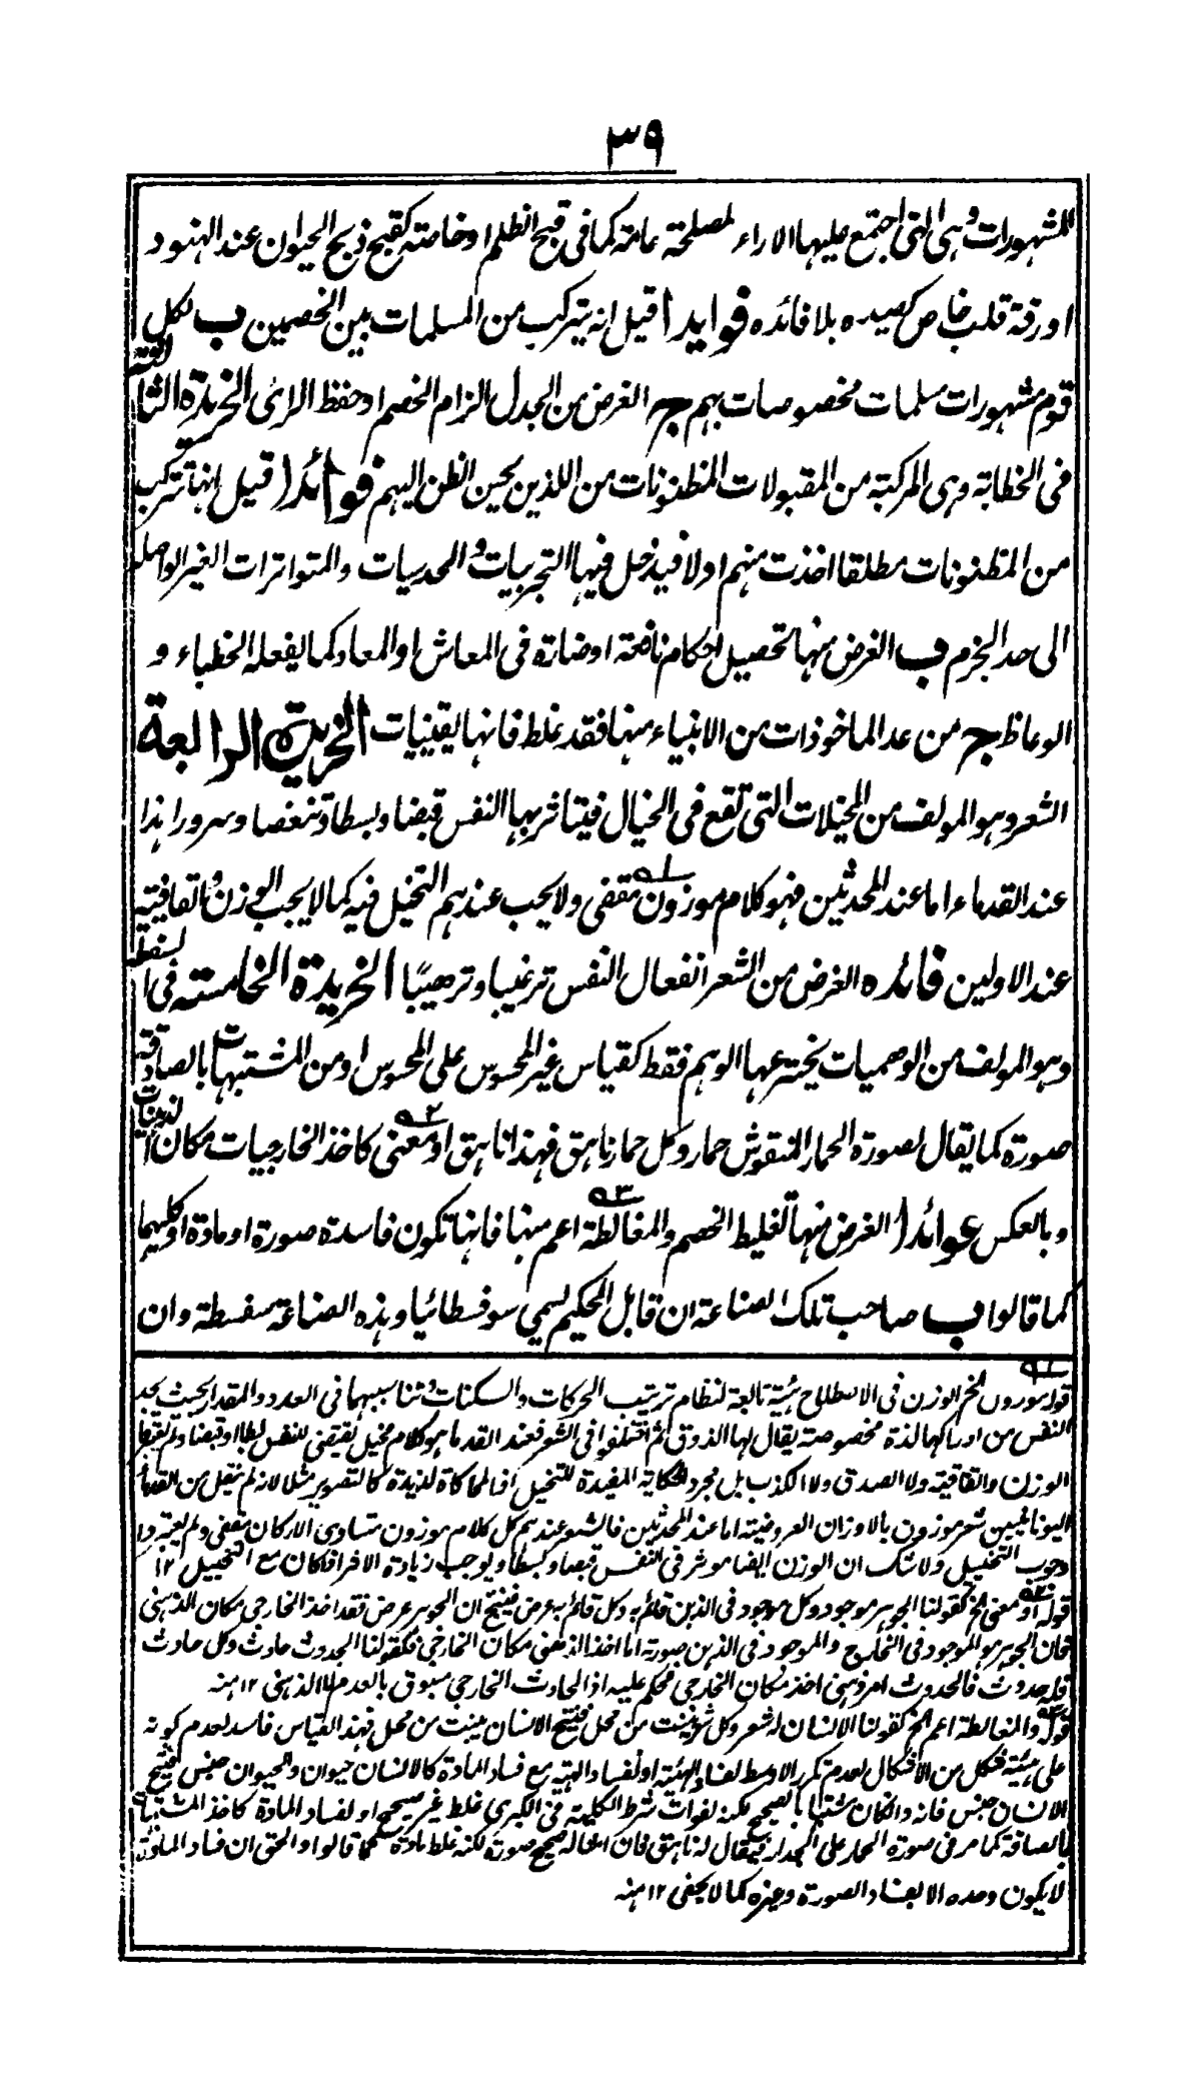 ٣٩
المشهورات وهى التى اجتمع عليها الاراء لمصلحة عامة كما فى قبح الظلم او خاصة كقبح ذبح الحيوان عند الهنود
او رقة قلب خاص كصيده بلا فائده فوايد ا قيل انه يتركب من المسلمات بين الخصمين ب لكل
قوم مشهورات مسلمات مخصوصات بهم ج الغرض من الجدل الزام الخصم او حفظ الرائ الخريدة الثالثة
فى الخطابة وهى المركبة من المقبولات المظنونات من اللذين يحسن الظن اليهم فوائد ا قيل انها تتركب
من المظنونات مطلقا اخذت منهم اولا فيدخل فيها التجربيات والحدسيات والمتواترات الغير الواصلة
الى حد الجزم ب الغرض منها تحصيل احكام نافعة او ضارة فى المعاش او المعاد كما يفعله الخطباء و
الوعاظ ج من عد الماخوذات من الانبياء منها فقد غلط فانها يقينيات الخريدة الرابعة
الشعر وهو المولف من المخيلات التى تقع فى الخيال فيتاثر بها النفس قبضا وبسطا وتنغصا وسرورا هذا
عند القدماء اما عند المحدثين فهو كلام موزون مقفى ولا يجب عندهم التخيل فيه كما لا يجب الوزن والقافية
عند الاولين فائده الغرض من الشعر انفعال النفس ترغيبا وترهيبا الخريدة الخامسة فى السفسطة
وهو المولف من الوهميات يخترعها الوهم فقط كقياس غير المحسوس على المحسوس او من المشتبهات بالصادقة
صورة كما يقال لصورة الحمار المنقوش حمار وكل حمار ناهق فهذا ناهق او معنى كاخذ الخارجيات مكان الذهنيات
وبالعكس عوائد ا الغرض منها تغليط الخصم والمغالطة اعم منها فانها تكون فاسدة صورة او مادة او كليهما
كما قالوا ب صاحب تلك الصناعة ان قابل الحكيم يسمي سوفسطائيا وهذه الصناعة سفسطة وان
قوله موزون الخ الوزن فى الاصطلاح هيئة تابعة لنظام ترتيب الحركات والسكنات وتناسبهما فى العدد والمقدار بحيث يجد
النفس من ادراكها لذة مخصوصة يقال لها الذوق ثم اختلفوا فى الشعر فعند القدماء هو كلام مخيل يقتضى للنفس بسطا او قبضا ولم يعتبروا
الوزن والقافية ولا الصدق ولا الكذب بل مجرد الحكاية المفيدة للتخيل اذ المحاكاة لذيذة كالتصوير مثلا لانه لم ينقل من القدماء
اليونانيين شعر موزون بالاوزان العروضية اما عند المحدثين فالشعر عندهم كل كلام موزون متساوى الاركان مقفى ولم يعتبروا
وجوب التخييل ولا شك ان الوزن ايضا موثر فى النفس قبضا وبسطا ويوجب زيادة الاخر اذ كان مع التخييل ١٢
قوله او معنى الخ كقولنا الجوهر موجود وكل موجود فى الذهن قائم به وكل قائم به عرض فينتج ان الجوهر عرض فقد اخذ الخارجي مكان الذهنى
فان الجوهر هو الموجود فى الخارج والموجود فى الذهن صورته اما اخذ الذهنى مكان الخارجي فكقولنا الحدوث حادث وكل حادث
فله حدوث فالحدوث امر ذهنى اخذ مكان الخارجي فحكم عليه اذ الحادث الخارجي مسبوق بالعدم لا الذهنى ١٢ منه
قوله والمغالطة اعم الخ كقولنا الانسان له شعر وكل شعر ينبت من محل فينتج الانسان ينبت من محل فهذا القياس فاسد لعدم كونه
على هيئة شكل من الاشكال لعدم تكرر الاوسط لفساد الهيئة او لفساد الهيئة مع فساد المادة كالانسان حيوان والحيوان جنس فينتج
الانسان جنس فانه وان كان مشتبها بالصحيح لكنه لفوات شرط الكلية فى الكبرى غلط غير صحيح او لفساد المادة كاخذ المشتبهات
بالصادقة كما مر فى صورة الحمار على الجدار فيقال له ناهق فان صحيح صورة لكنه غلط مادة كما قالوا والحق ان فساد المادة
لا يكون وحده الا بفساد الصورة وغيره كما لا يخفى ١٢ منه